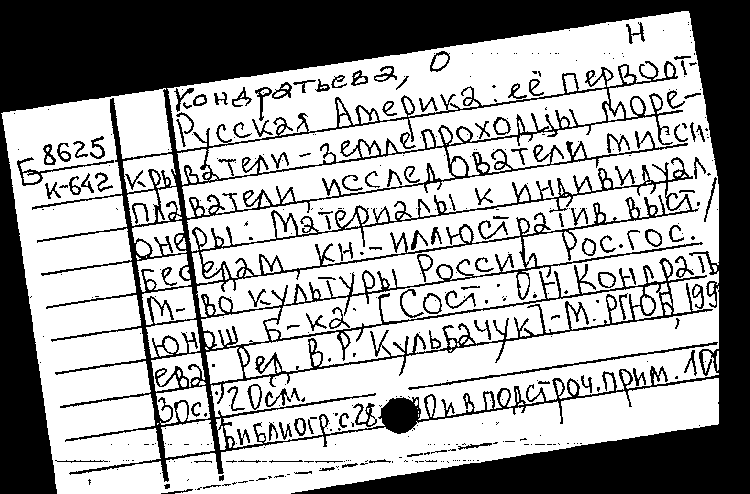 Н
Кондратьева, О
Русская Америка: её первоот-
Б 8625
К-642
крыватели-землепроходцы, море-
плаватели, исследователи, мисси-
онеры: Материалы к индивидуал.
беседам, кн.-иллюстратив. выст. /
М-во культуры России Рос. гос.
юнош. б-ка; [Сост.: О.Н. Кондрать
ева; Ред. В.Р. Кульбачук]. - М.: РГЮБ, 199
30с.; 20см.
Библиогр.: с.28- 30 и в подстроч. прим. 100